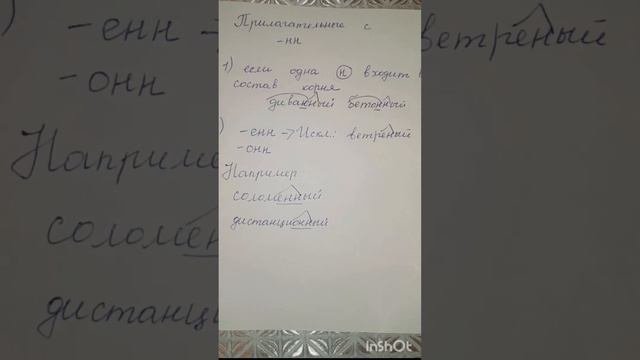 Прилагательные с
-нн
1) если одна н входит в
состав корня
диванный бетонный
) -енн → Искл.: ветреный
-онн
Например
соломенный
дистанционный
InShOt